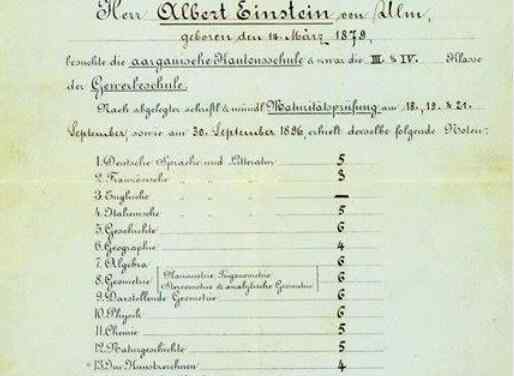 Herr Albert Einstein von Ulm,
geboren den 14. März 1879,
besuchte die aargauische Kantonsschule & zwar die III. & IV. Klasse
der Gewerbeschule.
Nach abgelegter schriftl. & mündl. Maturitätsprüfung am 18., 19. & 21.
September, sowie am 30. September 1896, erhielt derselbe folgende Noten:
1. Deutsche Sprache und Litteratur 5
2. Französische " " " 3
3. Englische " " " —
4. Italienische " " " 5
5. Geschichte 6
6. Geographie 4
7. Algebra 6
8. Geometrie Planimetrie, Trigonometrie 6
Stereometrie & analytische Geometrie
9. Darstellende Geometrie 6
10. Physik 6
11. Chemie 5
12. Naturgeschichte 5
*13. Im Kunstzeichnen 4